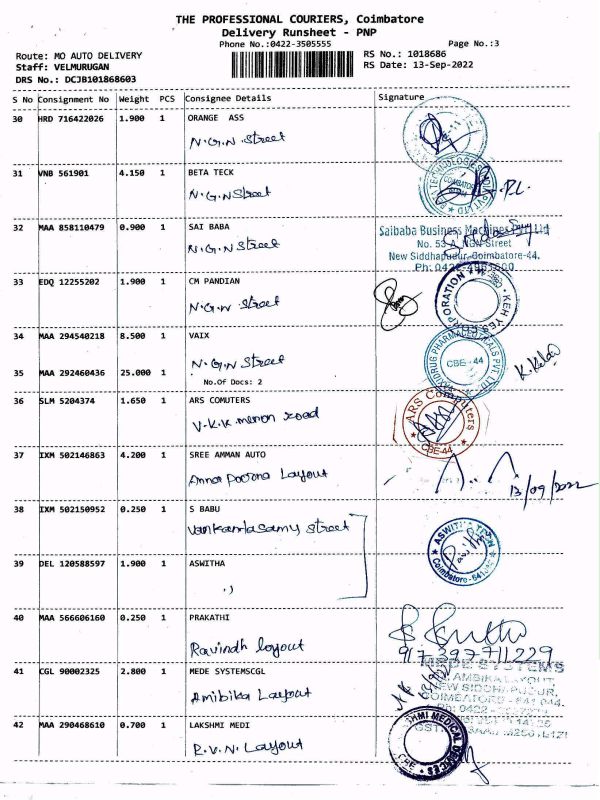 THE PROFESSIONAL COURIERS, Coimbatore
Delivery Runsheet - PNP
Phone No.:0422-3505555
Page No.:3
Route: MO AUTO DELIVERY
RS No.: 1018686
Staff: VELMURUGAN
RS Date: 13-Sep-2022
DRS No.: DCJB101868603
S No Consignment No Weight PCS Consignee Details Signature
30 HRD 716422026 1.900 1 ORANGE ASS
N.G.N Street
31 VNB 561901 4.150 1 BETA TECK
N.G.N Street
COIMBATORE
32 MAA 858110479 0.900 1 SAI BABA
N.G.N Street
Saibaba Business Machines Pvt Ltd
No. 53-A, NGN Street
New Siddhapudur, Coimbatore-44.
33 EDQ 12255202 1.900 1 CM PANDIAN
N.G.N Street
34 MAA 294540218 8.500 1 VAIX
N.G.N Street
CBE-44
35 MAA 292460436 25.000 1
No.Of Docs: 2
36 SLM 5204374 1.650 1 ARS COMUTERS
V.K.K menon road
ARS Computers
CBE-44
37 IXM 502146863 4.200 1 SREE AMMAN AUTO
Anna Poorna Layout
13/09/2022
38 IXM 502150952 0.250 1 S BABU
Venkandasamy Street
39 DEL 120588597 1.900 1 ASWITHA
,,
Coimbatore-641
40 MAA 566606160 0.250 1 PRAKATHI
Ravindh layout
917397711229
41 CGL 90002325 2.800 1 MEDE SYSTEMSCGL
Ambika Layout
MEDE SYSTEMS
AMBIKA LAYOUT,
NEW SIDDHAPUDUR,
COIMBATORE - 641 044.
42 MAA 290468610 0.700 1 LAKSHMI MEDI
R.V.N. Layout
LAKSHMI MEDICAL DEVICES
CBE